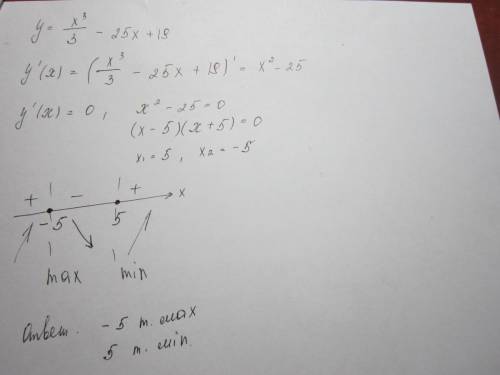 y = x³/3 - 25x + 19
y'(x) = (x³/3 - 25x + 19)' = x² - 25
y'(x) = 0, x² - 25 = 0
(x - 5)(x + 5) = 0
x₁ = 5, x₂ = -5
+ - + x
-5 5
max min
Ответ. -5 т. max
5 т. min.